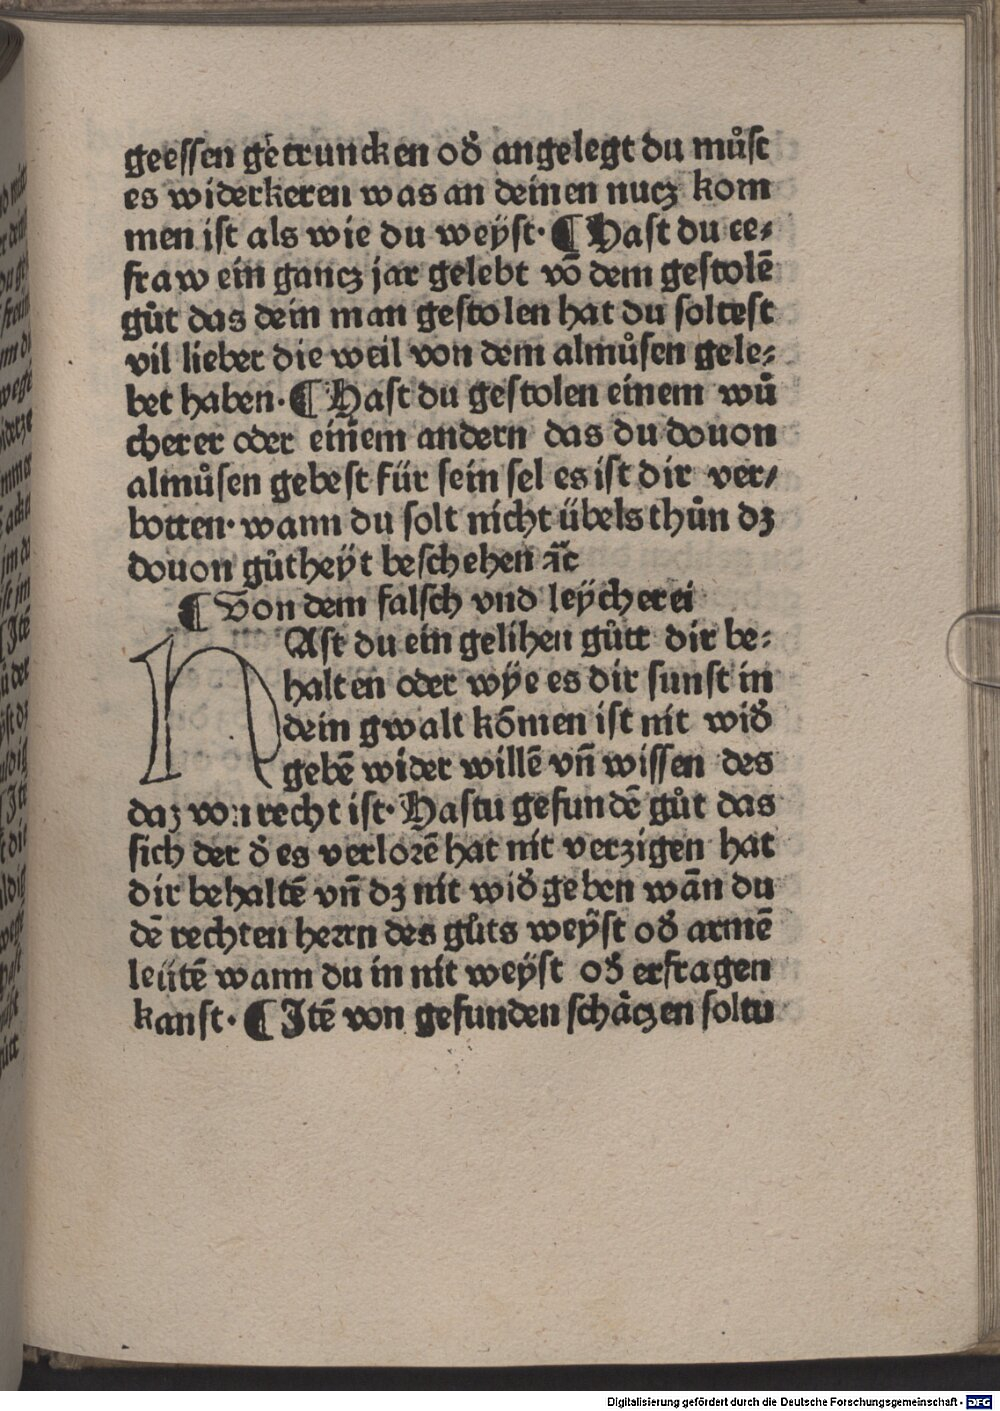 geessen getruncken od̄ angelegt du můst
es widerkeren was an deinen nucz kom
men ist als wie du weÿst· ¶ Hast du ee⸗
fraw ein gancz jar gelebt vō dem gestolē
gůt das dein man gestolen hat du soltest
vil lieber die weil von dem almůsen gele⸗
bet haben· ¶ Hast du gestolen einem wů
cherer oder einem andern das du douon
almůsen gebest für sein sel es ist dir ver⸗
botten· wann du solt nicht übels thůn dz
douon gůtheÿt beschehen ꝛc̄
¶ Von dem falsch vnd leÿcherei
HAst du ein gelihen gůtt dir be⸗
halten oder wÿe es dir sunst in
dein gwalt kōmen ist nit wid̄
gebē wider willē vn̄ wissen des
daz von recht ist· Hastu gefundē gůt das
sich der d̄ es verlorē hat nit verzigen hat
dir behaltē vn̄ dz nit wid̄ geben wān du
dē rechten herrn des gůts weÿst od̄ armē
leütē wann du in nit weÿst od̄ erfragen
kanst· ¶ Itē von gefunden schäczen soltu
Digitalisierung gefördert durch die Deutsche Forschungsgemeinschaft - DFG